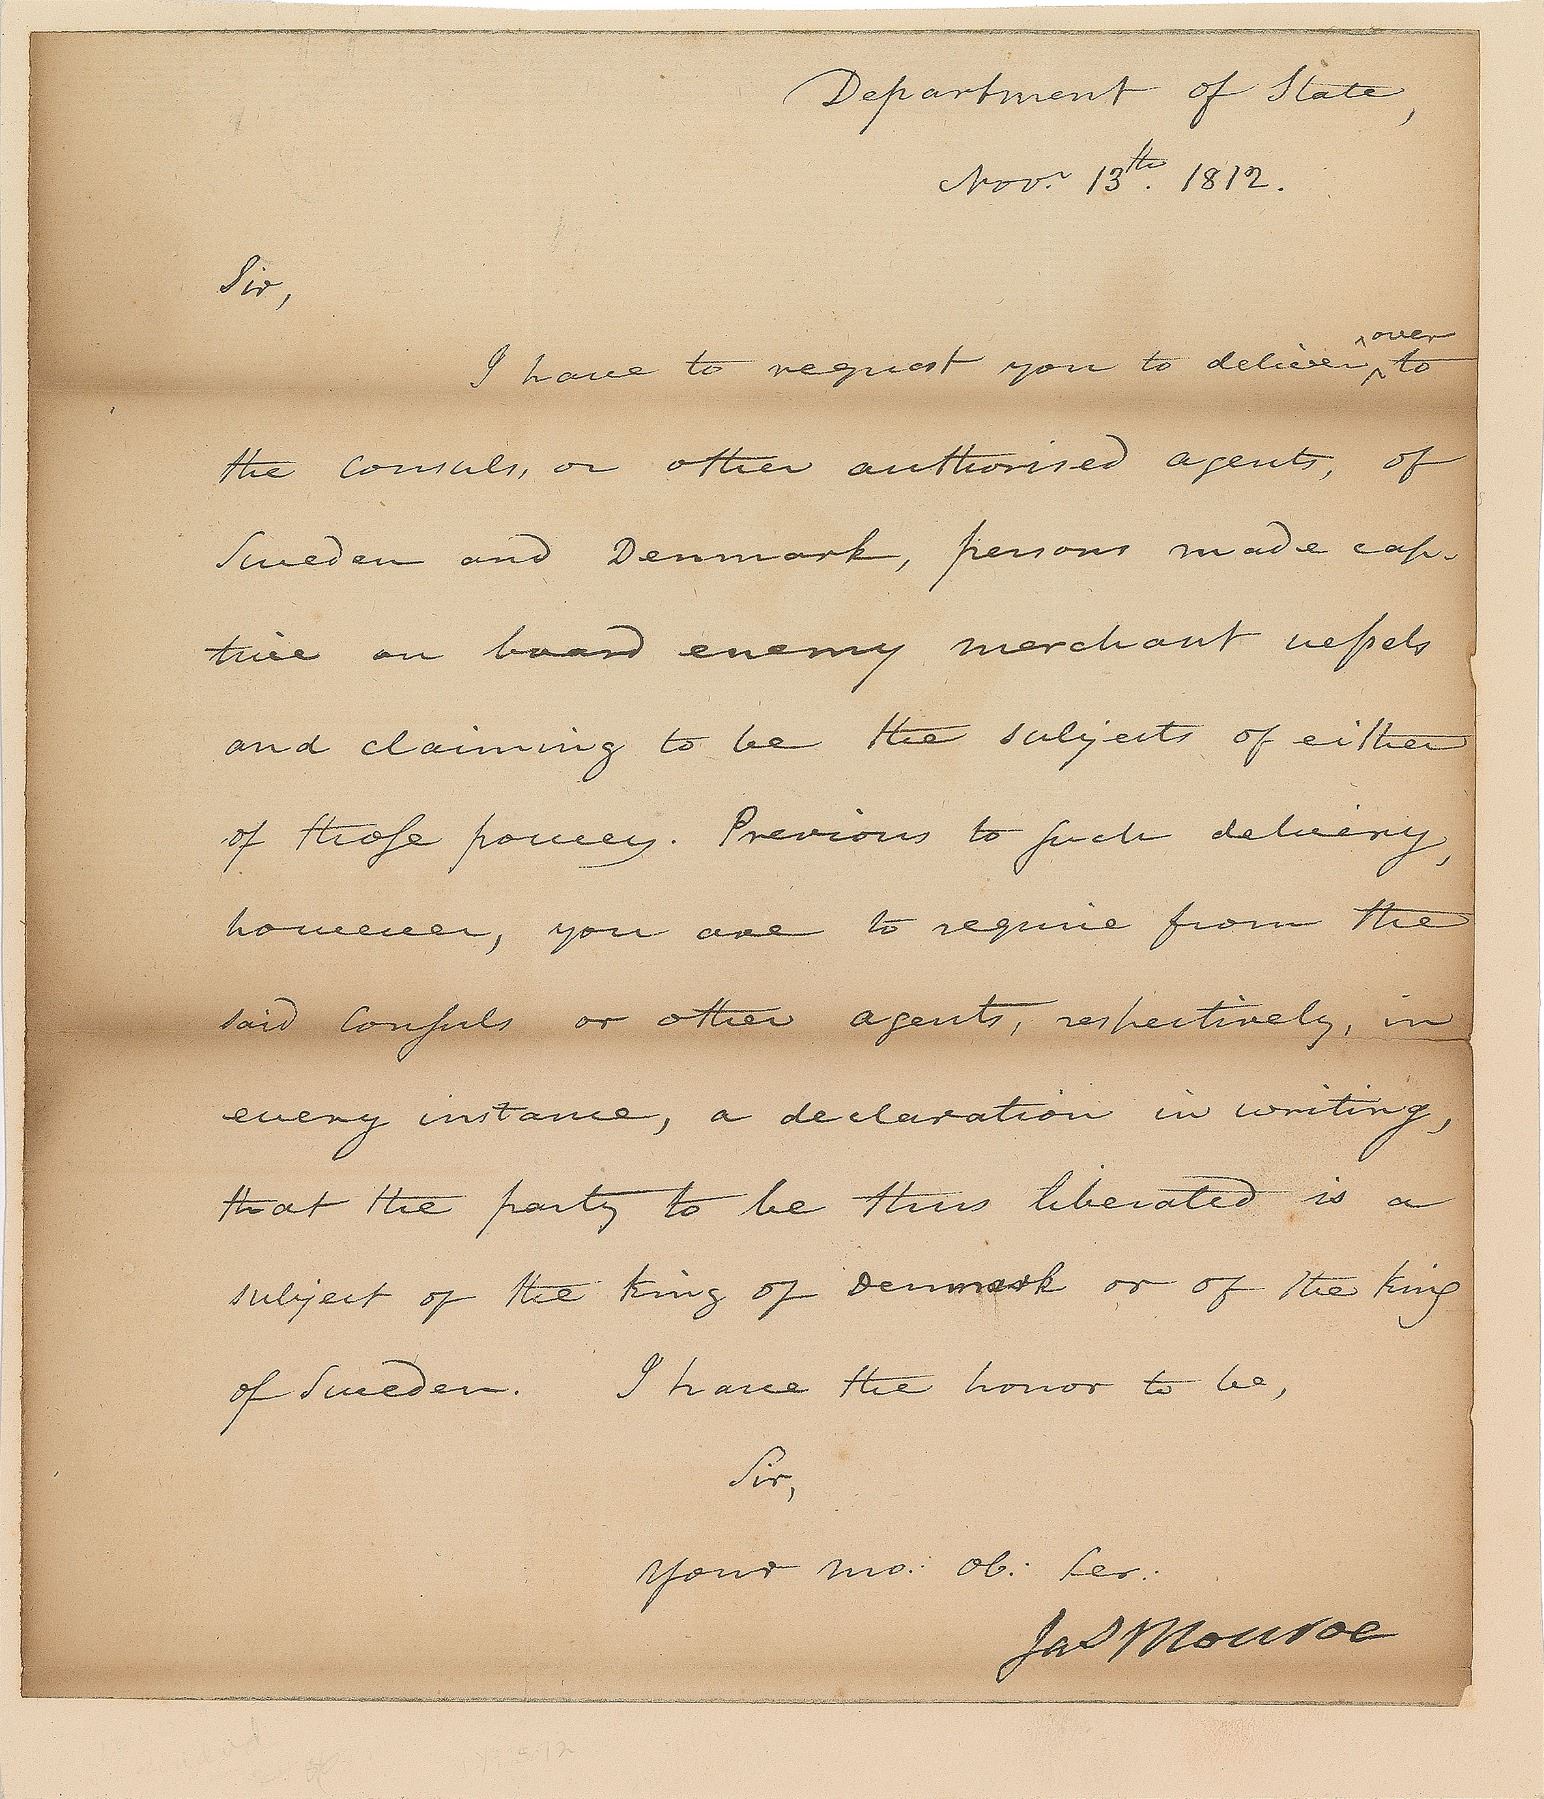 Department of State,
Novr. 13th. 1812.
Sir,
I have to request you to deliver over to
the consuls, or other authorised agents, of
Sweden and Denmark, persons made cap-
tive on board enemy merchant veſsels
and claiming to be the subjects of either
of thoſe powers. Previous to ſuch delivery,
however, you are to require from the
said Conſuls or other agents, respectively, in
every instance, a declaration in writing,
that the party to be thus liberated is a
subject of the king of Denmark or of the king
of Sweden. I have the honor to be,
Sir,
Your mo: ob: Ser:
Jas Monroe